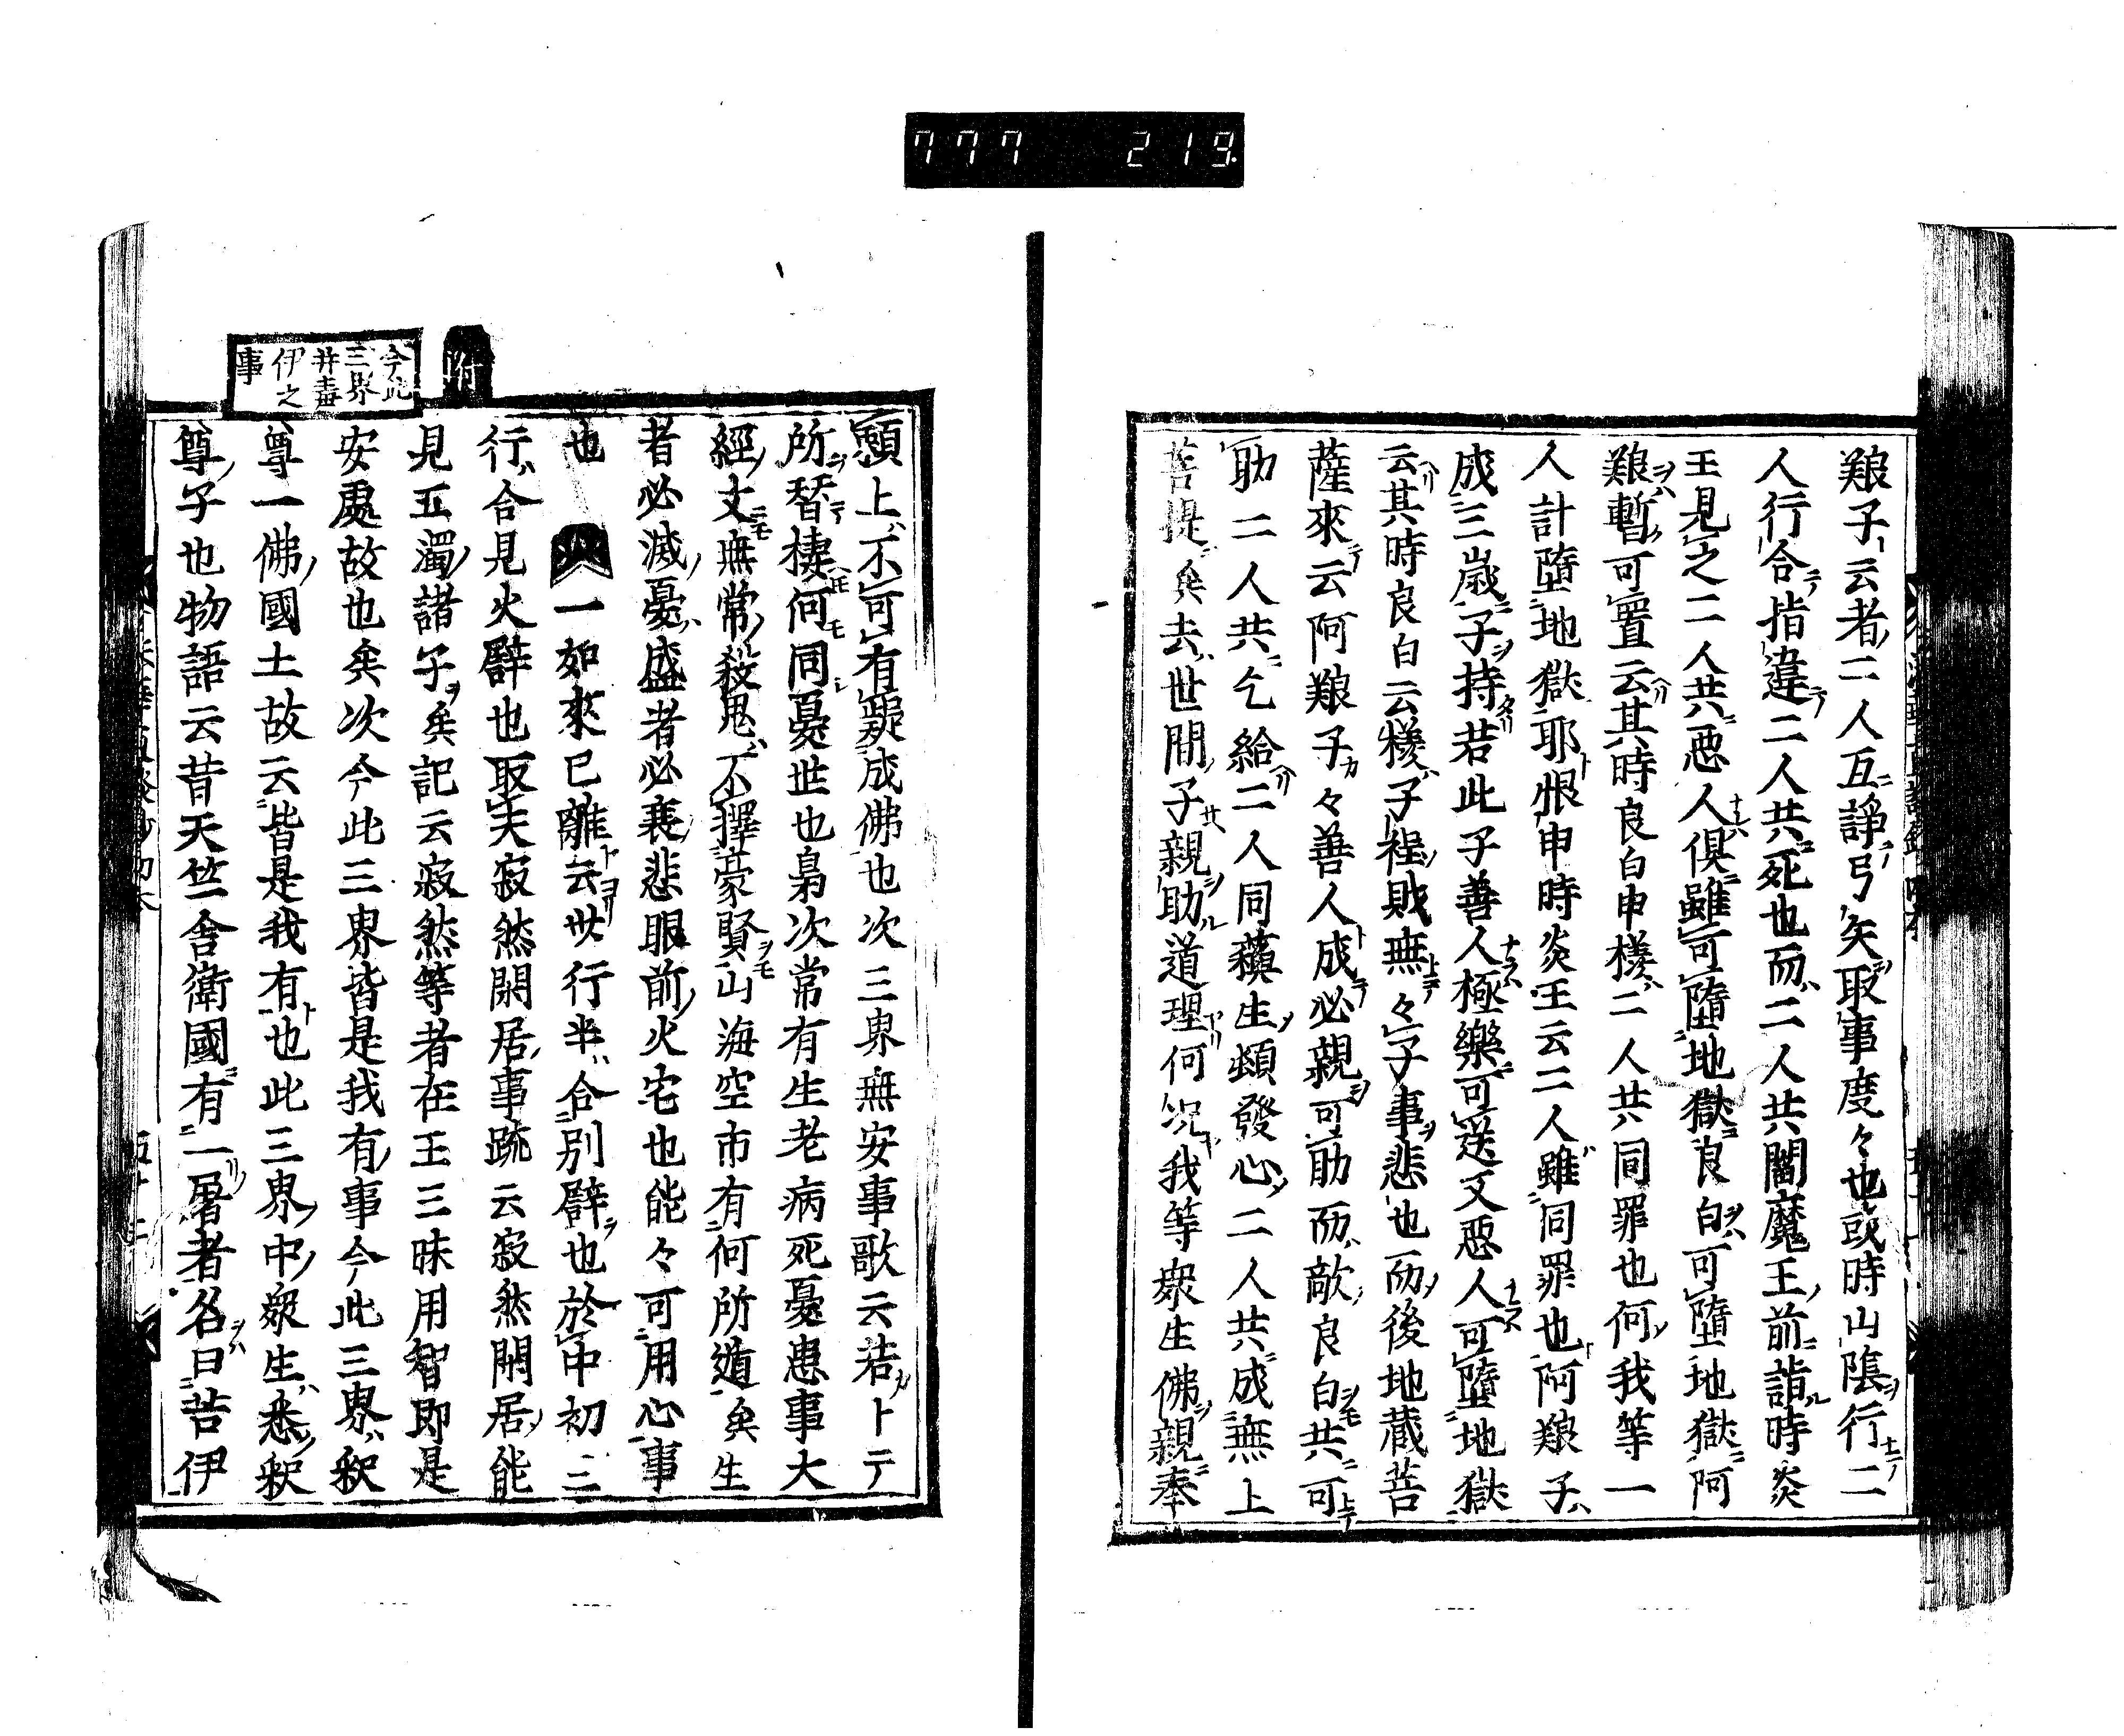 777 219
難子云者二人互諍弓矢取事度々也或時山陰行二
人行合指違二人共死也而二人共閻魔王前詣時炎
王見之二人共悪人倶雖可墮地獄良白可墮地獄阿
難暫可置云其時良白申様二人共同罪也何我等一
人計墮地獄耶恨申時炎王云二人雖同罪也阿難子
成三歳子持若此子善人極樂可送又悪人可墮地獄
云其時良白云様子程賎無々子事悲也而後地蔵菩
薩來云阿難子々善人成必親可助而敵良白共可
助二人共乞給二人同蘓生頓發心二人共成無上
菩提矣去世間子親助道理何况我等衆生佛親奉
頼上不可有疑成佛也次三界無安事歌云若トテ
所替棲何同憂世也梟次常有生老病死憂患事大
經文無常殺鬼不擇豪賢山海空市有何所遁矣生
者必滅憂盛者必衰悲眼前火宅也能々可用心事
也 一如來已離云世行半合別譬也於中初三
行合見火譬也取夫寂然閑居事䟽云寂然閑居能
見五濁諸子矣記云寂然等者在王三昧用智即是
安處故也矣次今此三界皆是我有事今此三界釈
尊一佛國土故云皆是我有也此三界中衆生悉釈
尊子也物語云昔天竺舎衛國有一屠者名曰苦伊
附
今此
三界
并毒
伊之
事